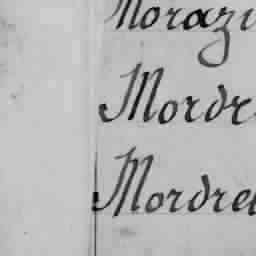 Morazi
Mordr
Mordre